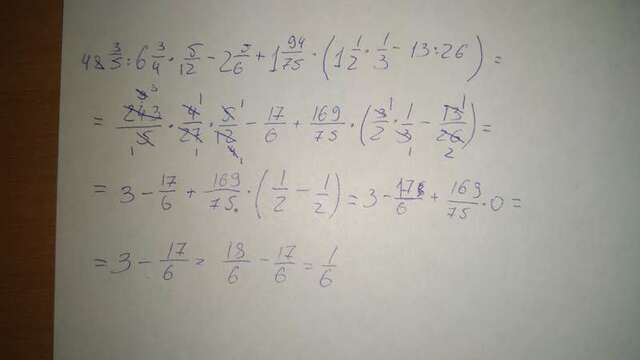 48 3/5 : 6 3/4 · 5/12 - 2 5/6 + 1 94/75 · (1 1/2 · 1/3 - 13 : 26) =
= 243/5 · 4/27 · 5/12 - 17/6 + 169/75 · (3/2 · 1/3 - 13/26) =
= 3 - 17/6 + 169/75 · (1/2 - 1/2) = 3 - 17/6 + 169/75 · 0 =
= 3 - 17/6 = 18/6 - 17/6 = 1/6